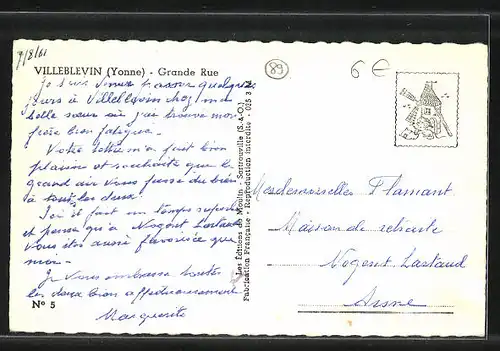 7/8/61
VILLEBLEVIN (Yonne) - Grande Rue
Je suis venue passer quelques
jours à Villeblevin chez ma
belle sœur où j'ai trouvé mon
frère bien fatigué.
Votre lettre m'a fait bien
plaisir et souhaite que le
grand air vous fasse du bien
à tous les deux.
Ici il fait un temps superbe
et pense qu'à Nogent Lartaud
vous êtes aussi favorisée que
moi -
Je vous embrasse toutes
les deux bien affectueusement
Marguerite
N° 5
Les Editions du Moulin - Sartrouville (S.-&-O.)
Fabrication Française - Reproduction Interdite - 025 3
89
6 €
Mesdemoiselles Flamant
Maison de retraite
Nogent Lartaud
Aisne